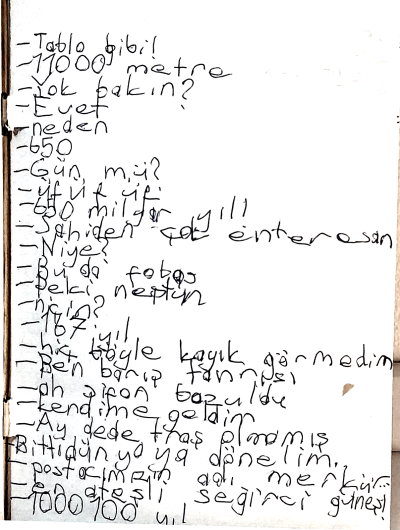 -Tablo gibi!
-11000 metre
-Yok bakın?
-Evet
-neden
-650
-Gün mü?
-üf üf üf
-650 milyar yıl!
-Sahiden çok enteresan
-Niye?
-Bu da
-Peki neptün
-niçin?
-167 yıl
-hiç böyle kayık görmedim
-Ben barış tanrısı
-ah sifon bozuldu
-kendime geldim
-Ay dede traş olmamış
Bitti dünyaya dönelim.
-postacımın adı merkür
-en ateşli seğirci güneş!
-1000100 yıl